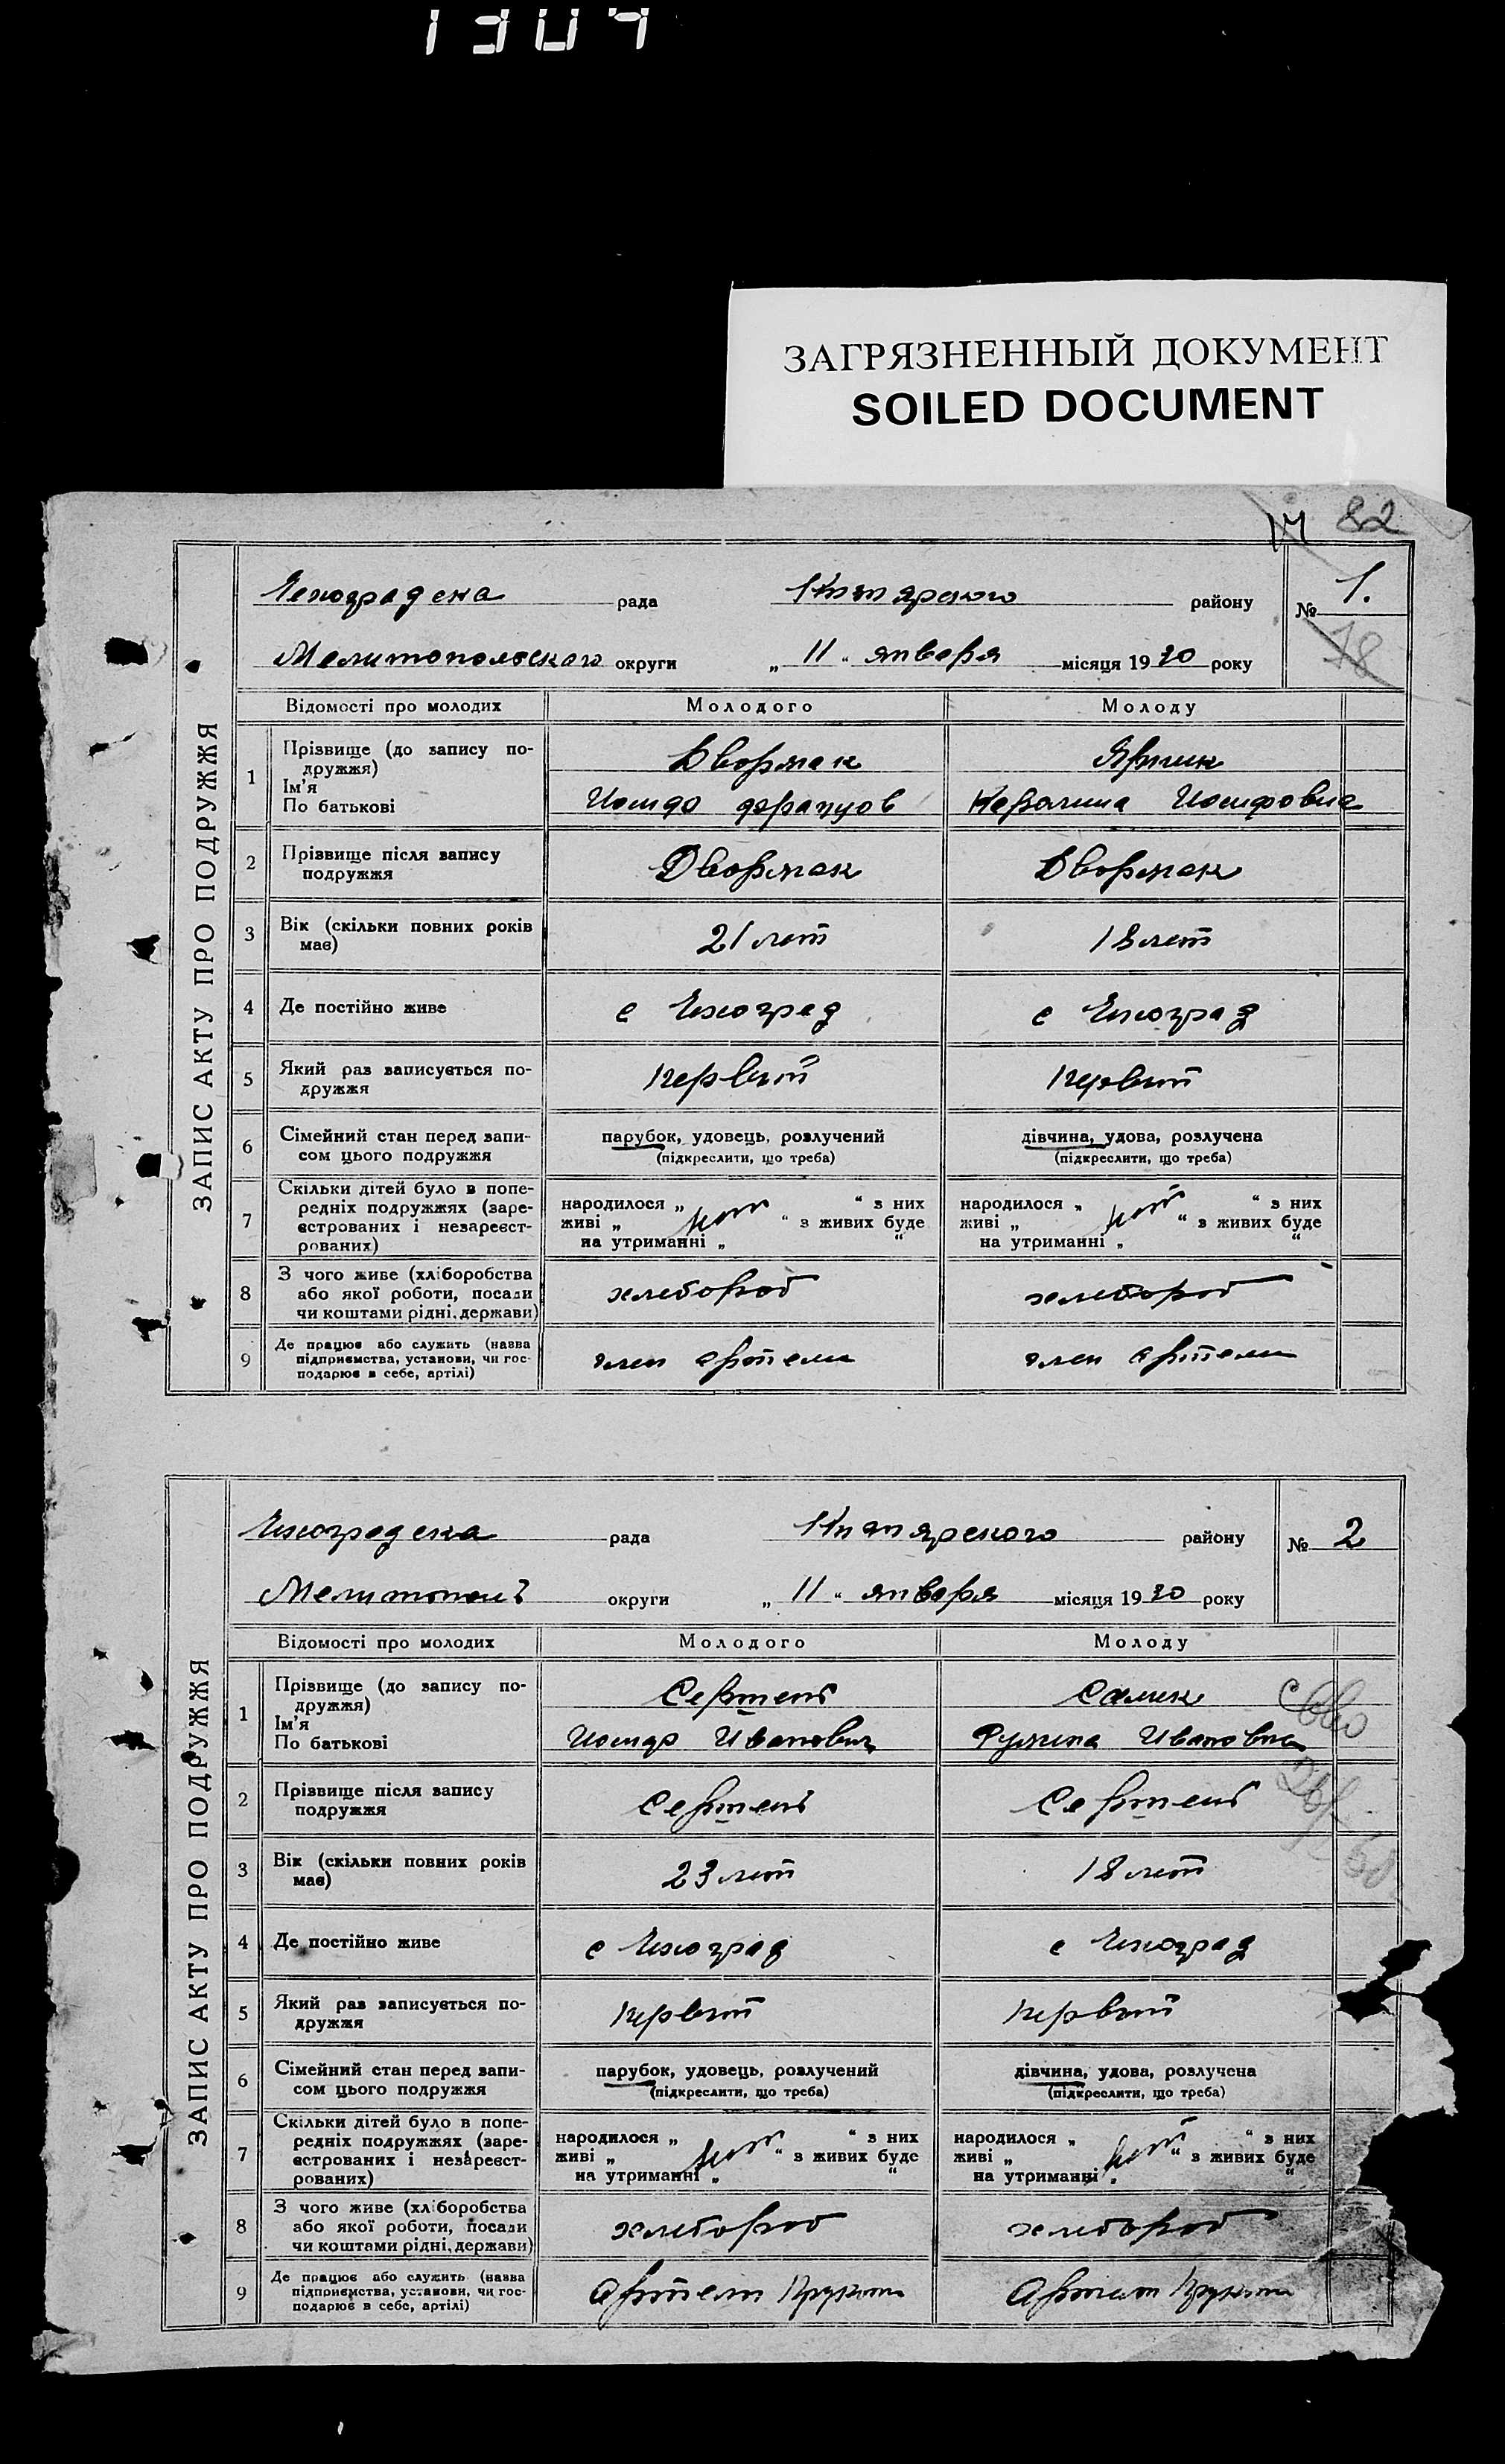 1304
ЗАГРЯЗНЕННЫЙ ДОКУМЕНТ
SOILED DOCUMENT
82
ЗАПИС АКТУ ПРО ПОДРУЖЖЯ
Чехоградска рада района району № 1.
78
Мелитопольского округи „ 11 “ января місяця 1930 року
Відомості про молодих Молодого Молоду
1 Прізвище (до запису по-
дружжя)
Ім'я
По батькові
Дворжак
Иосиф францов Иосифовна
2 Прізвище після запису
подружжя
Дворжак Дворжак
3 Вік (скільки повних років
має)
21 лет 18 лет
4 Де постійно живе с Чехоград с Чехоград
5 Який раз записується по-
дружжя
первый первый
6 Сімейний стан перед запи-
сом цього подружжя
парубок, удовець, розлучений дівчина, удова, розлучена
(підкреслити, що треба) (підкреслити, що треба)
7 Скільки дітей було в попе-
редніх подружжях (заре-
єстрованих і незареєст-
рованих)
народилося „ нет “ з них народилося „ нет “ з них
живі „ “ з живих буде живі „ “ з живих буде
на утриманні „ “ на утриманні „ “
8 З чого живе (хліборобства
або якої роботи, посади
чи коштами рідні, держави)
хлебороб хлебороб
9 Де працює або служить (назва
підприємства, установи, чи гос-
подарює в себе, артілі)
член артели член артели
ЗАПИС АКТУ ПРО ПОДРУЖЖЯ
Чехоградска рада району № 2
Мелитополь округи „ 11 “ января місяця 1930 року
Відомості про молодих Молодого Молоду
1 Прізвище (до запису по-
дружжя)
Ім'я
По батькові
Иосиф Иванович Ивановна
2 Прізвище після запису
подружжя
3 Вік (скільки повних років
має)
23 лет 18 лет
4 Де постійно живе с Чехоград с Чехоград
5 Який раз записується по-
дружжя
первый первый
6 Сімейний стан перед запи-
сом цього подружжя
парубок, удовець, розлучений дівчина, удова, розлучена
(підкреслити, що треба) (підкреслити, що треба)
7 Скільки дітей було в попе-
редніх подружжях (заре-
єстрованих і незареєст-
рованих)
народилося „ нет “ з них народилося „ нет “ з них
живі „ “ з живих буде живі „ “ з живих буде
на утриманні „ “ на утриманні „ “
8 З чого живе (хліборобства
або якої роботи, посади
чи коштами рідні, держави)
хлебороб хлебороб
9 Де працює або служить (назва
підприємства, установи, чи гос-
подарює в себе, артілі)